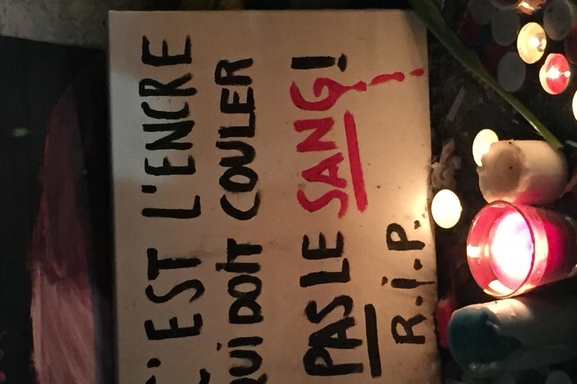 C'EST L'ENCRE
QUI DOIT COULER
PAS LE SANG!
R.i.P.